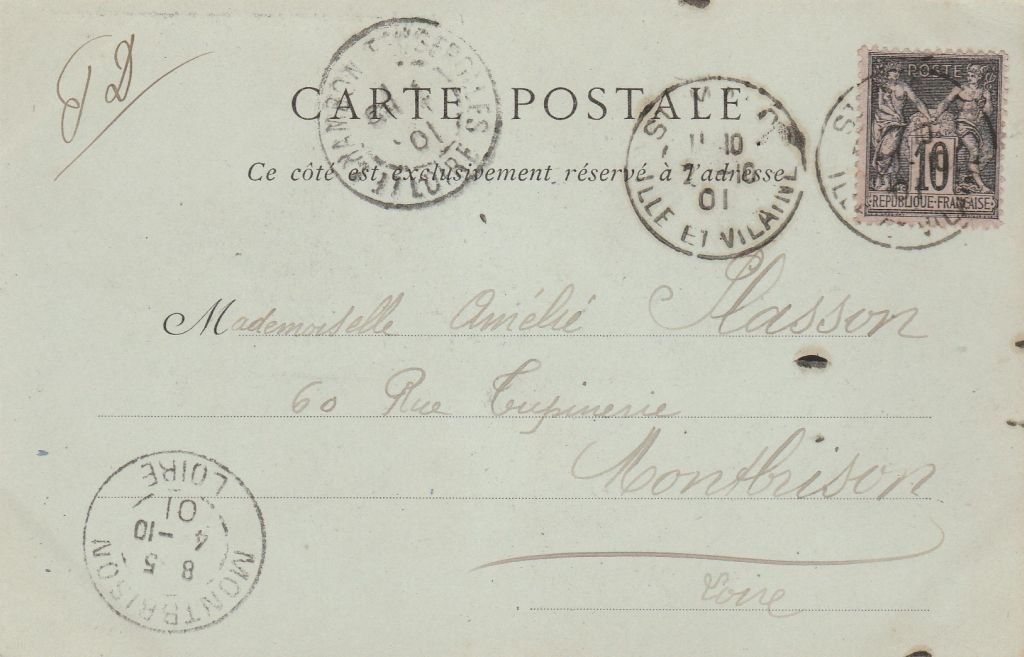 JD
CARTE POSTALE
Ce côté est exclusivement réservé à l'adresse
POSTE
10
REPUBLIQUE FRANÇAISE
10
01
ILLE ET VILAINE
LE CHAMBON
LOIRE
01
Mademoiselle Amélie Plasson
60 Rue Tupinerie
Montbrison
Loire
MONTBRISON
8 5
4 -10
01
LOIRE